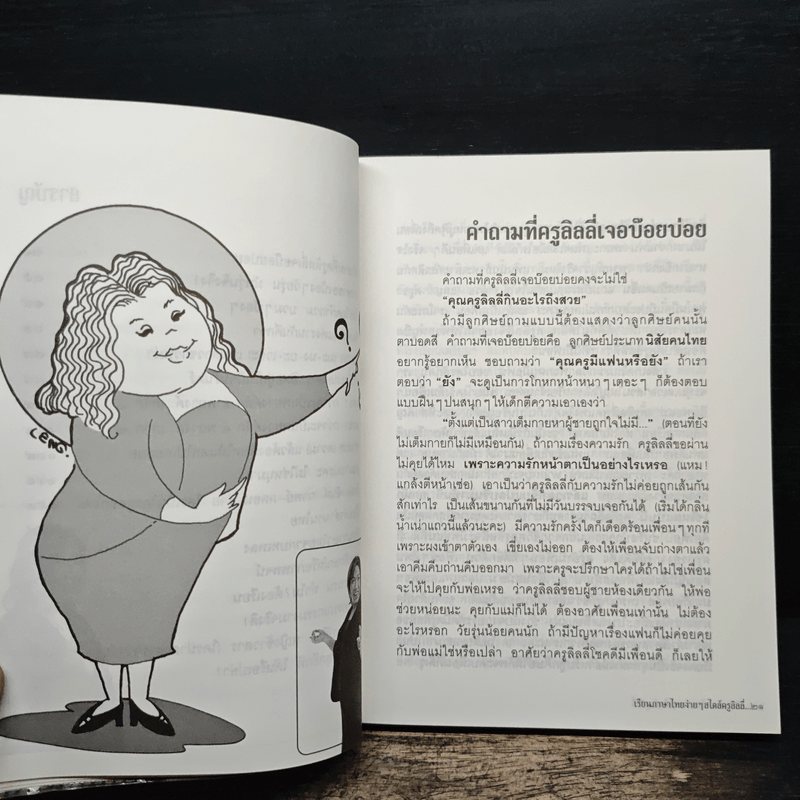 LENG!
?
คำถามที่ครูลิลลี่เจอบ๊อยบ่อย
คำถามที่ครูลิลลี่เจอบ๊อยบ่อยคงจะไม่ใช่
“คุณครูลิลลี่กินอะไรถึงสวย”
ถ้ามีลูกศิษย์ถามแบบนี้ต้องแสดงว่าลูกศิษย์คนนั้น
ตาบอดสี คำถามที่เจอบ๊อยบ่อยคือ ลูกศิษย์ประเภท นิสัยคนไทย
อยากรู้อยากเห็น ชอบถามว่า “คุณครูมีแฟนหรือยัง” ถ้าเรา
ตอบว่า “ยัง” จะดูเป็นการโกหกหน้าหนา ๆ เตอะ ๆ ก็ต้องตอบ
แบบฝืน ๆ ปนสนุก ๆ ให้เด็กตีความเอาเองว่า
“ตั้งแต่เป็นสาวเต็มกายหาผู้ชายถูกใจไม่มี...” (ตอนที่ยัง
ไม่เต็มกายก็ไม่มีเหมือนกัน) ถ้าถามเรื่องความรัก ครูลิลลี่ขอผ่าน
ไม่คุยได้ไหม เพราะความรักหน้าตาเป็นอย่างไรเหรอ (แหม !
แกล้งตีหน้าเซ่อ) เอาเป็นว่าครูลิลลี่กับความรักไม่ค่อยถูกเส้นกัน
สักเท่าไร เป็นเส้นขนานกันที่ไม่มีวันบรรจบเจอกันได้ (เริ่มได้กลิ่น
น้ำเน่าแถวนี้แล้วนะคะ) มีความรักครั้งใดก็เดือดร้อนเพื่อน ๆ ทุกที
เพราะผงเข้าตาตัวเอง เขี่ยเองไม่ออก ต้องให้เพื่อนจับถ่างตาแล้ว
เอาคีมคีบถ่านคีบออกมา เพราะครูจะปรึกษาใครได้ถ้าไม่ใช่เพื่อน
จะให้ไปคุยกับพ่อเหรอ ว่าครูลิลลี่ชอบผู้ชายห้องเดียวกัน ให้พ่อ
ช่วยหน่อยนะ คุยกับแม่ก็ไม่ได้ ต้องอาศัยเพื่อนเท่านั้น ไม่ต้อง
อะไรหรอก วัยรุ่นน้อยคนนัก ถ้ามีปัญหาเรื่องแฟนก็ไม่ค่อยคุย
กับพ่อแม่ใช่หรือเปล่า อาศัยว่าครูลิลลี่โชคดีมีเพื่อนดี ก็เลยให้
เรียนภาษาไทยง่าย ๆ สไตล์ครูลิลลี่...๒๑